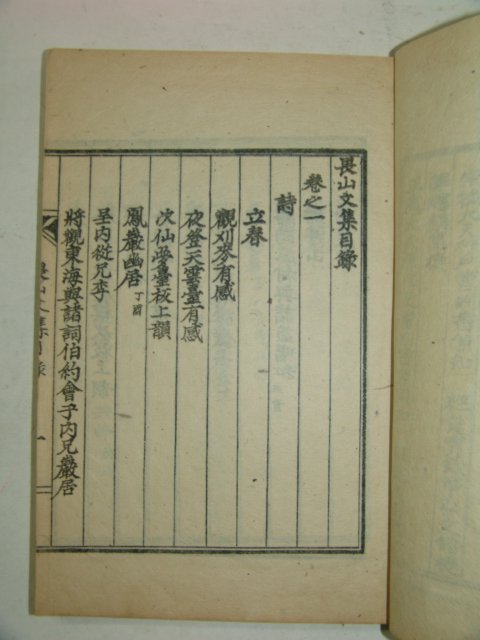 長山文集目錄
卷之一
詩
立春
觀刈麥有感
夜登天雲臺有感
次仙夢臺板上韻
鳳巖幽居 丁酉
呈內從兄李
將觀東海與諸詞伯約會于內兄巖居
長山文集目錄 一